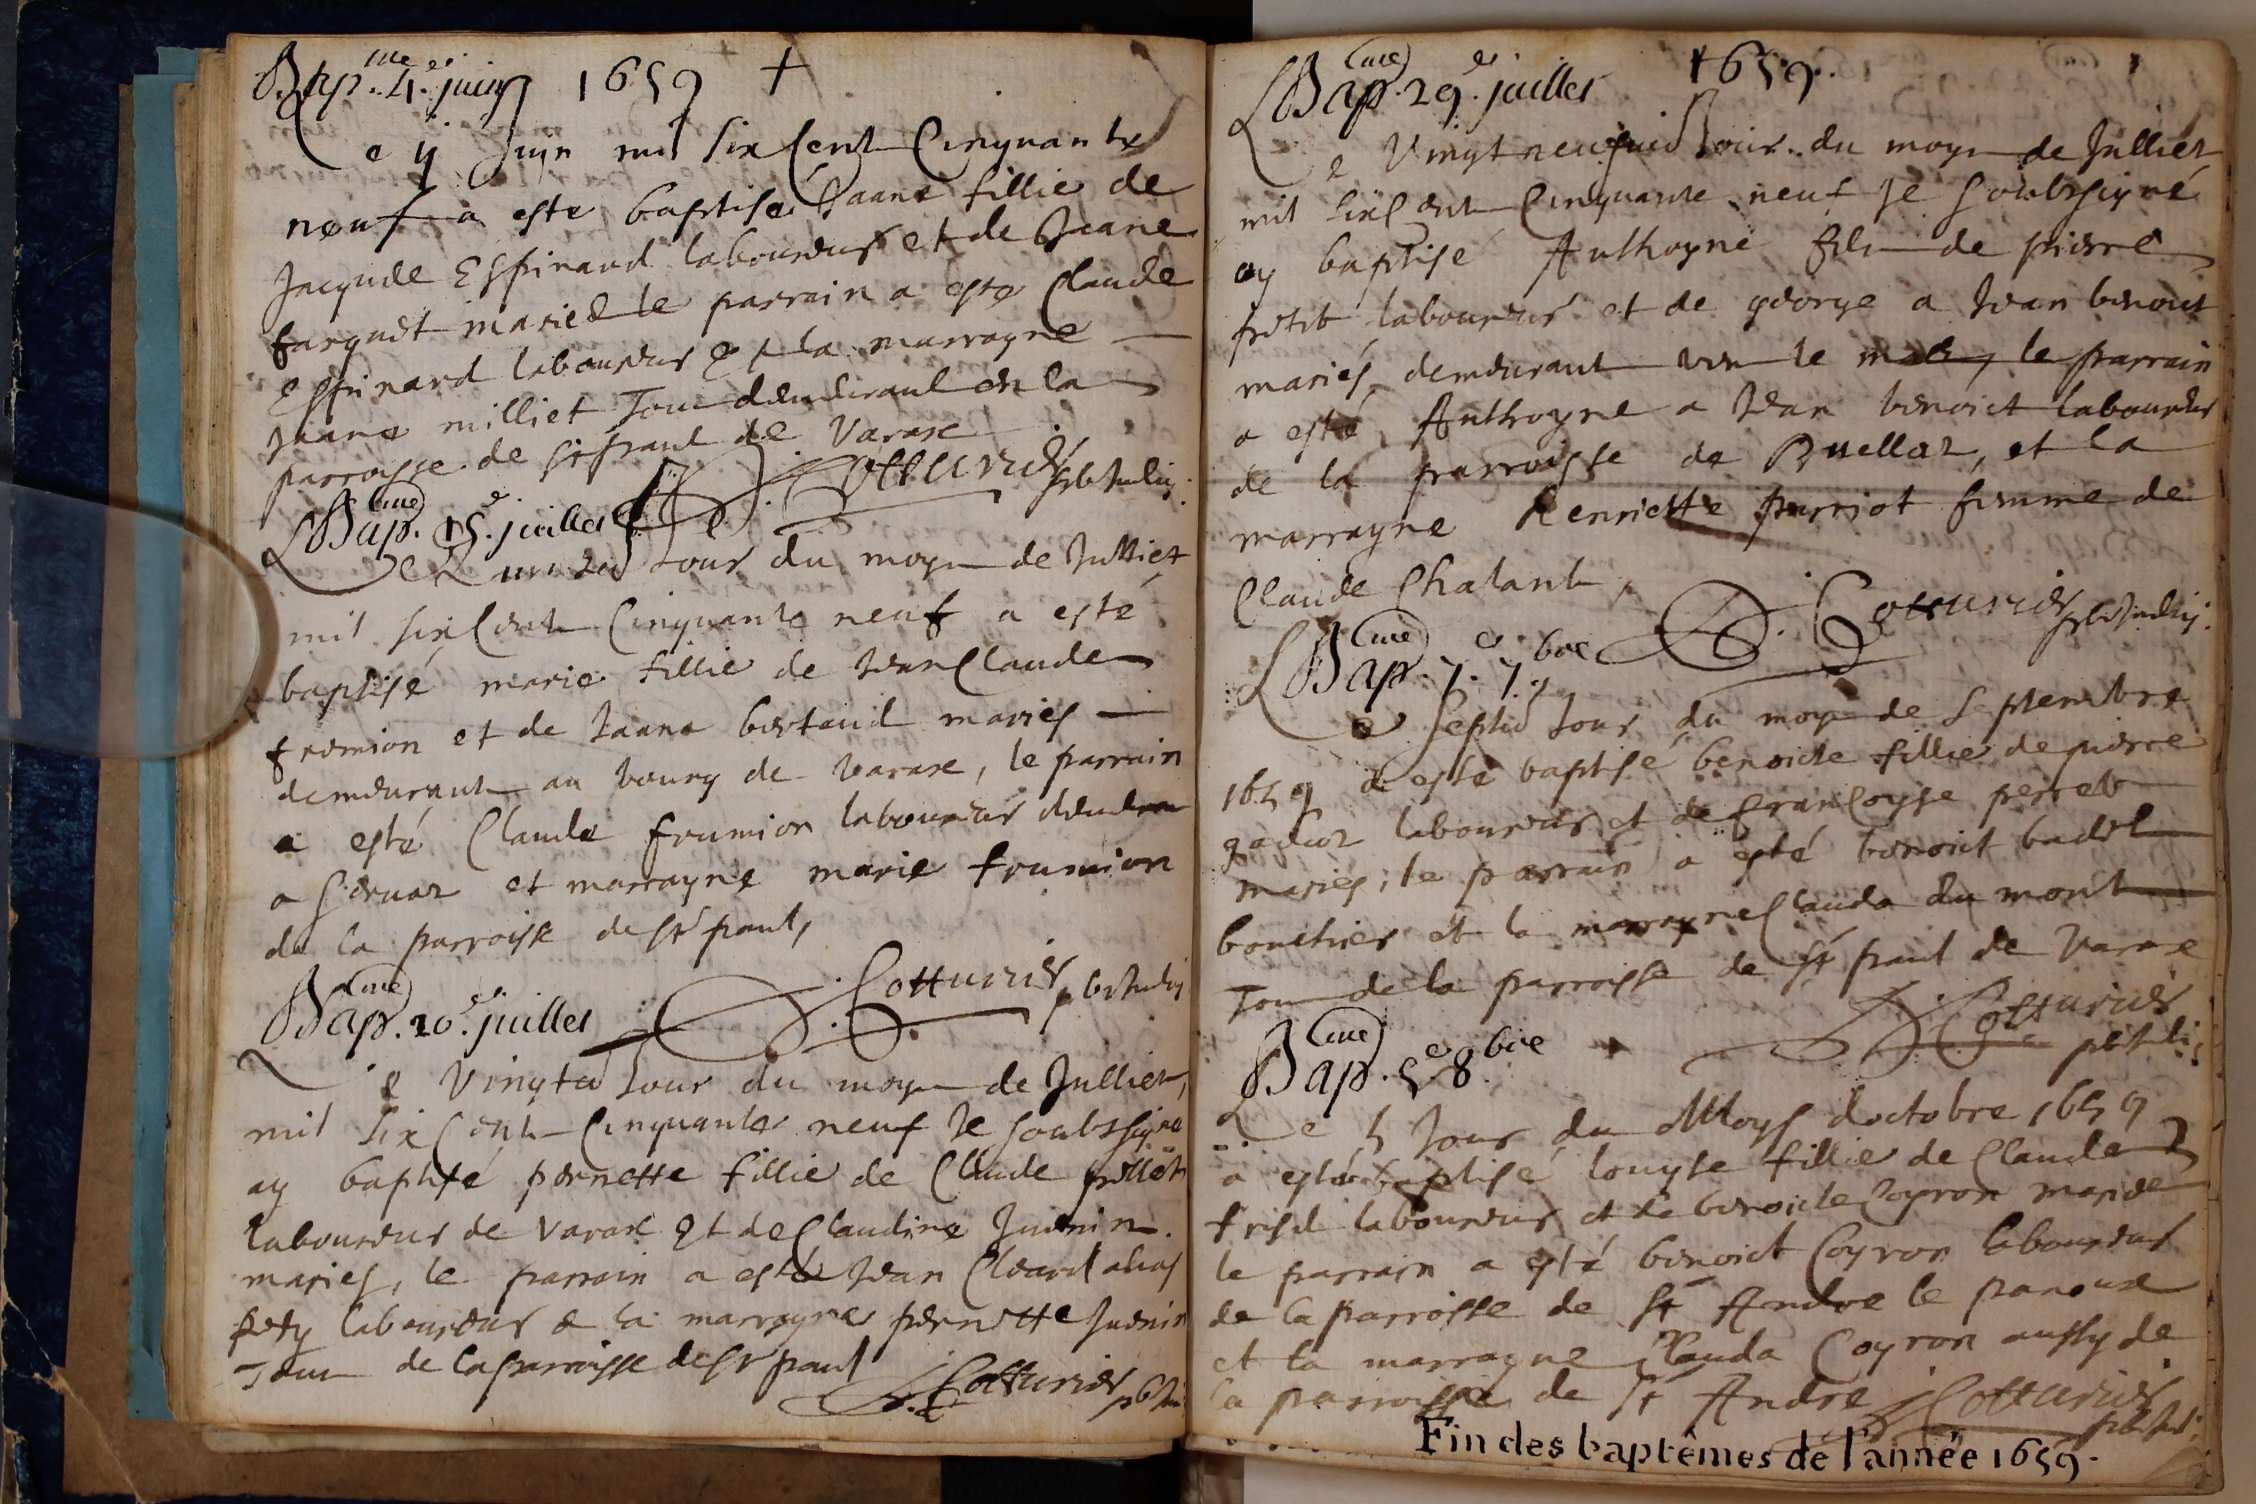 Bap.me 4.e juin 1659 +
Le ij Juyn mil six Cent Cinquante
neuf a este baptisé Jaane fillie de
Jacqude Espinard laboureur et de Jeane
farguet mariez le parrain a este Claude
espinard laboureur et la marrayne
Jaane milliet Tous demeurant en la
parroisse de St paul de Varax
Cotturier
Bap.me 15.e juillet
Le Jour du moys de Julliet
mil six Cent Cinquante neuf a esté
baptisé marie fillie de Jean Claude
fremion et de Jaane bertaud mariés
demeurant au bourg de Varax, le parrain
a esté Claude frumion laboureur
a Servaz et marrayne marie frumion
de la parroisse de St paul,
Cotturier
Bap.me 20.e juillet
Le Vingtie Jour du moys de Jullier,
mil six Cent Cinquante neuf Je soubssigne
ay baptisé pernette fillie de Claude pillot
laboureur de Varax Et de Claudine Juenin
mariés, le parrain a esté Jean alias
pety laboureur & la marrayne pernette Juenin
Tous de la parroisse de St paul
Cotturier
Bap.me 29.e juillet 1659.
Le Vingt neufuie Jour du moys de Jullier
mil six Cent Cinquante neuf Je Soubssigné
ay baptisé Anthoyne fils de pierre
petit laboureur et de george a Jean benoit
mariés demeurant le parrain
a esté Anthoyne a Jean benoict laboureur
de la parroisse de Buellaz, et la
marrayne Henriette perriot femme de
Claude Chalant,
Cotturier
Bap.me 7.e 7.bre
Le Septie Jour du moys de Septembre
1659 a este baptisé benoicte fillie de pierre
laboureur et de francoyse perret
mariés; le parrain a esté benoict badel
bouchier et la marrayne Clauda du mont
Tous de la parroisse de St paul de Varax
Cotturier
Bap.me 5.e 8.bre
Le 5 Jour du Moys doctobre 1659
a esté baptisé louyse fillie de Claude
laboureur et de benoicte Coyron mariés
le parrain a esté benoict Coyron laboureur
de la parroisse de St Andre le panoux
et la marrayne Clauda Coyron aussy de
la parroisse de St André Cotturier
Fin des baptêmes de l'année 1659.